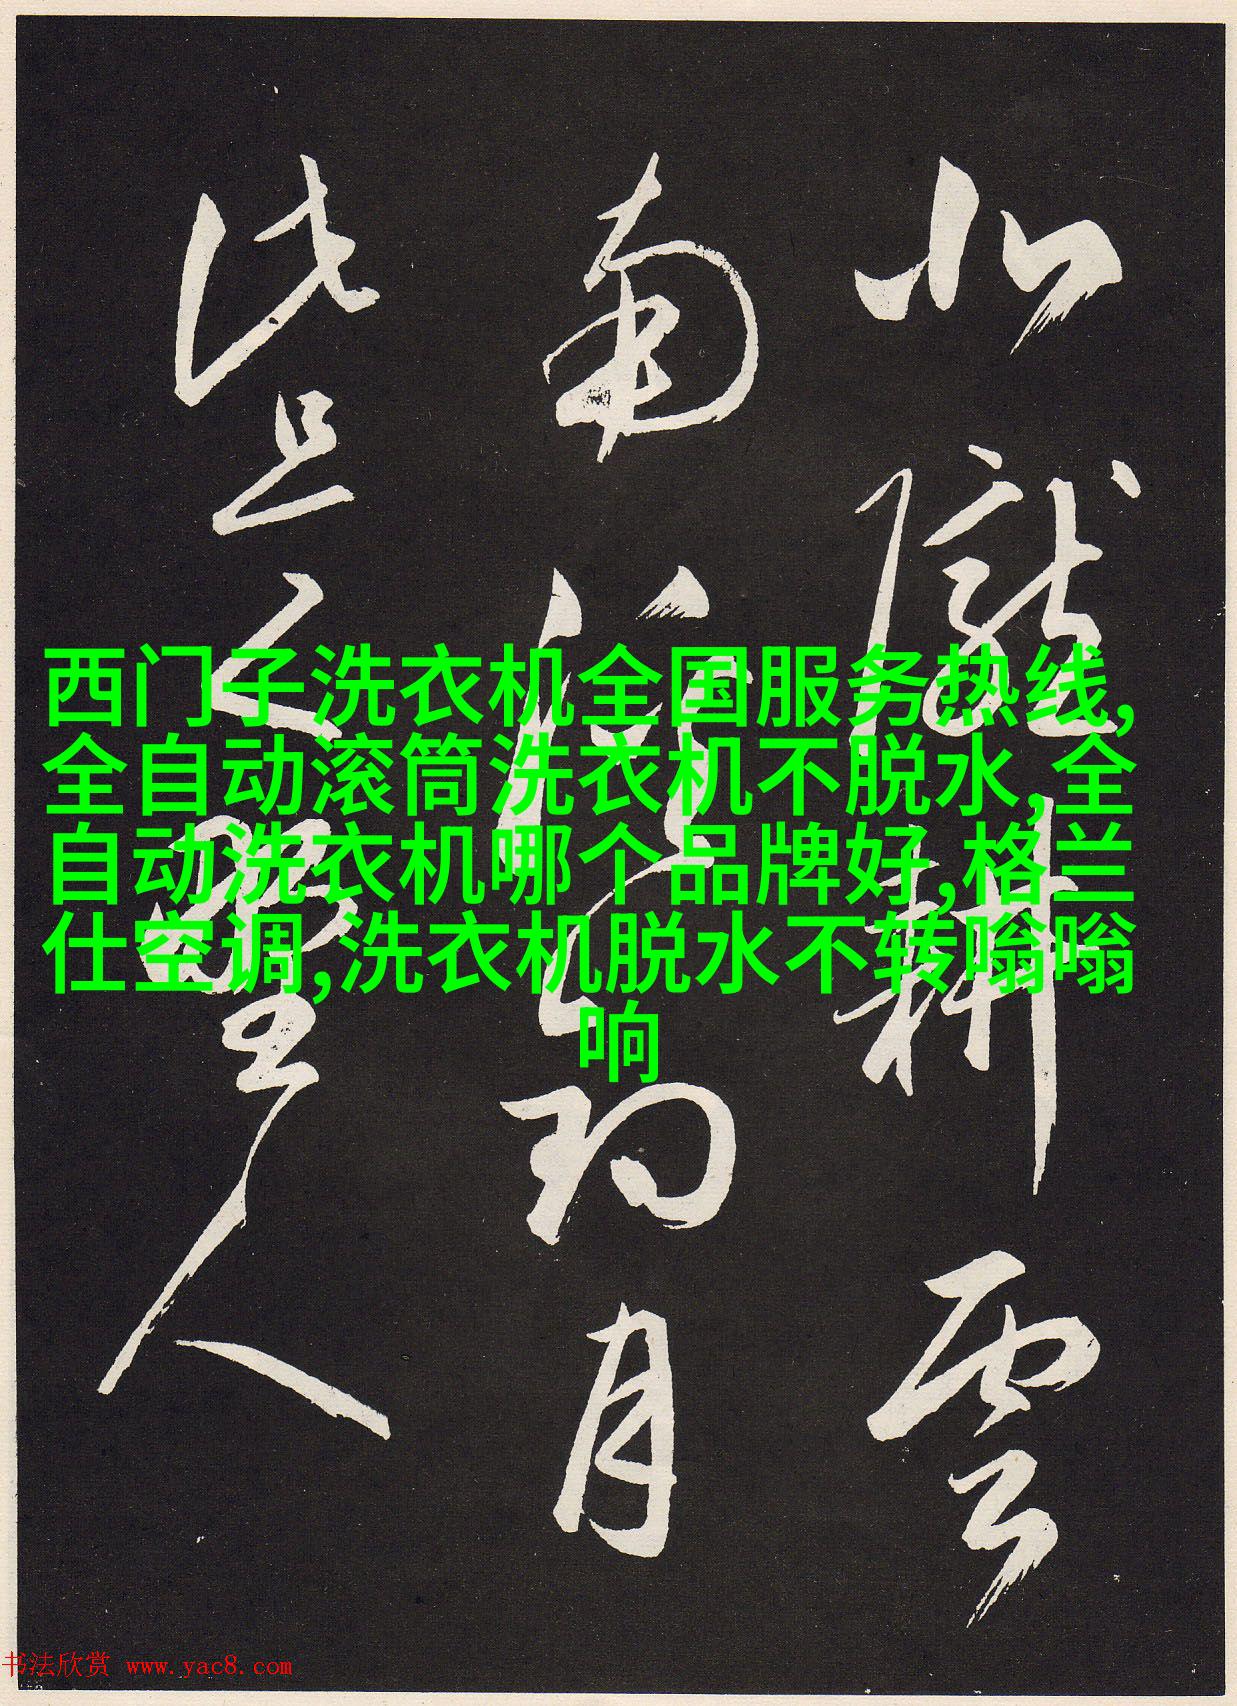 西门子洗衣机全国服务热线,
全自动滚筒洗衣机不脱水,全
自动洗衣机哪个品牌好,格兰
仕空调,洗衣机脱水不转嗡嗡
响
北隴耕雲
南溪釣月
此是野人
书法欣赏 www.yac8.com